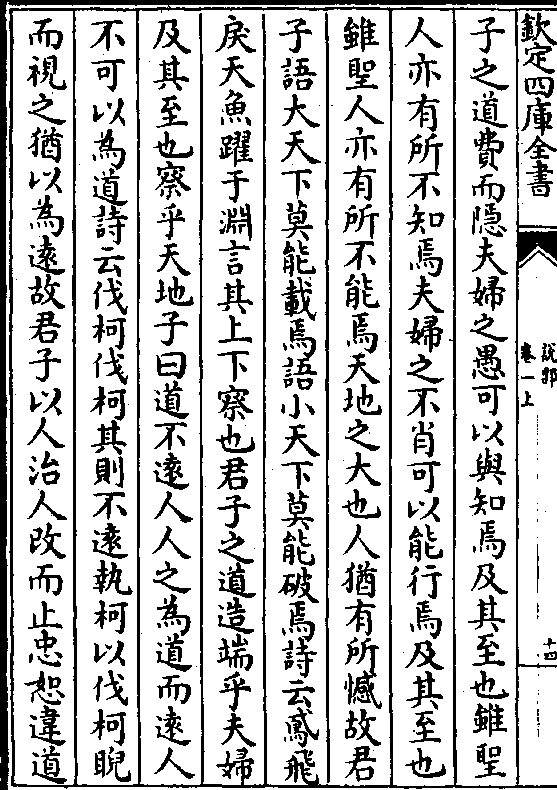 欽定四庫全書
說郛
卷一上
十四
子之道費而隠夫婦之愚可以與知焉及其至也雖聖
人亦有所不知焉夫婦之不肖可以能行焉及其至也
雖聖人亦有所不能焉天地之大也人猶有所憾故君
子語大天下莫能載焉語小天下莫能破焉詩云鳶飛
戾天魚躍于淵言其上下察也君子之道造端乎夫婦
及其至也察乎天地子曰道不逺人人之為道而逺人
不可以為道詩云伐柯伐柯其則不逺執柯以伐柯睨
而視之猶以為逺故君子以人治人改而止忠恕違道